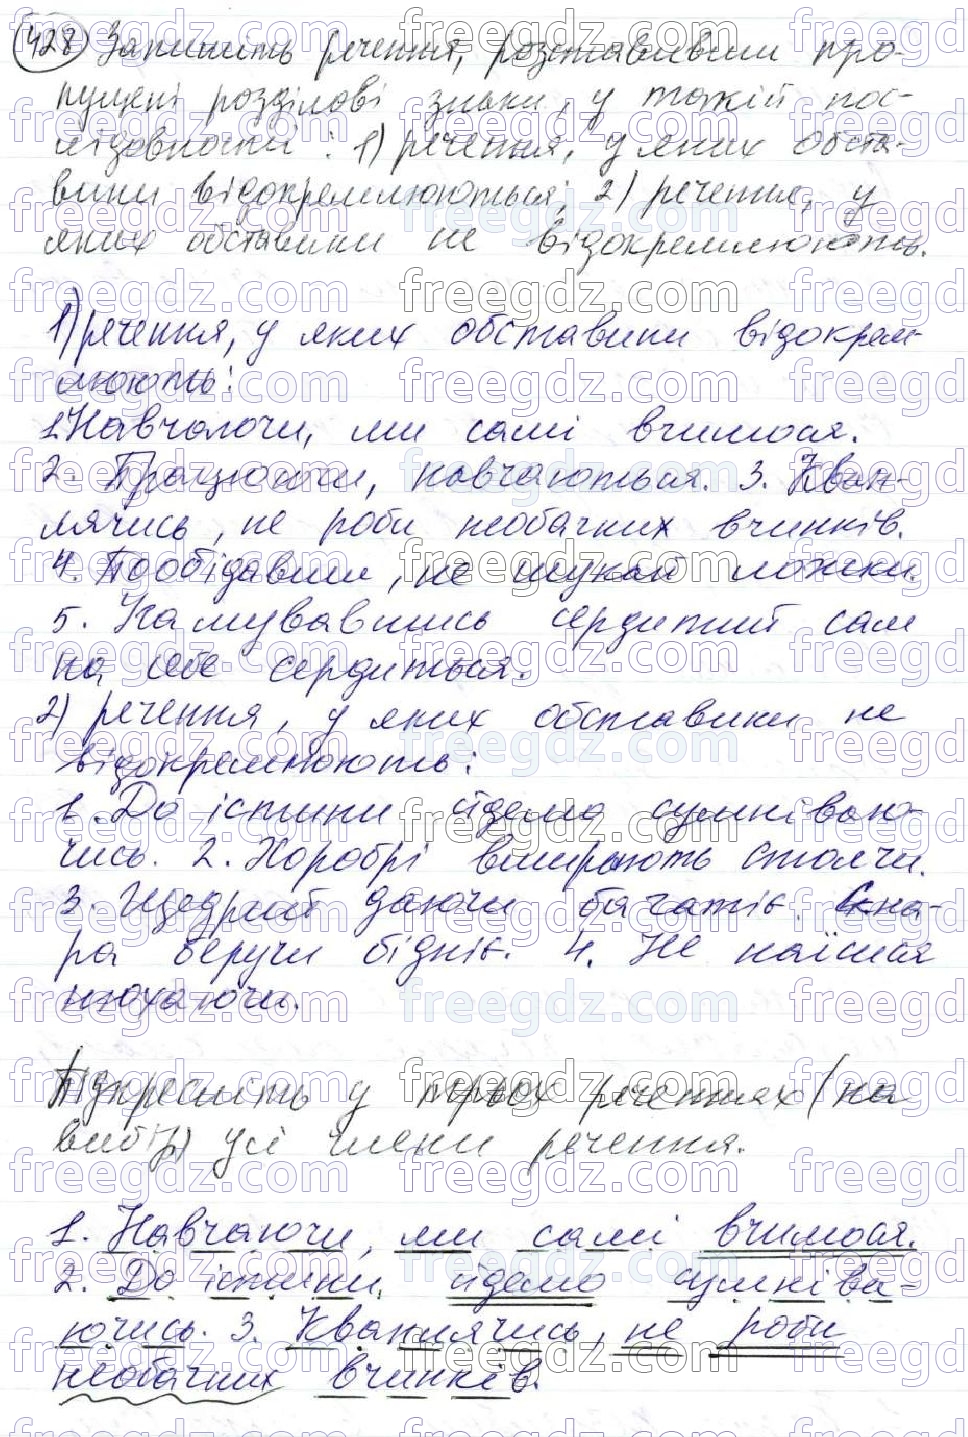 428 Запишіть речення, розставивши про-
пущені розділові знаки, у такій пос-
лідовності: 1) речення, у яких обста-
вини відокремлюються; 2) речення, у
яких обставини не відокремлюють.
1) речення, у яких обставини відокрем-
люють:
1. Навчаючи, ми самі вчимося.
2. Працюючи, навчаються. 3. Квап-
лячись, не роби необачних вчинків.
4. Пообідавши, не шукай ложки.
5. Угамувавшись сердитий сам
на себе сердиться.
2) речення, у яких обставини не
відокремлюють:
1. До істини йдемо сумніваю-
чись. 2. Хоробрі вмирають стоячи.
3. Щедрий даючи багатіє. Скна-
ра беручи бідніє. 4. Не наїшся
нюхаючи.
Підкресліть у трьох реченнях (на
вибір) усі члени речення.
1. Навчаючи, ми самі вчимося.
2. До істини йдемо сумніва-
ючись. 3. Кваплячись, не роби
необачних вчинків.